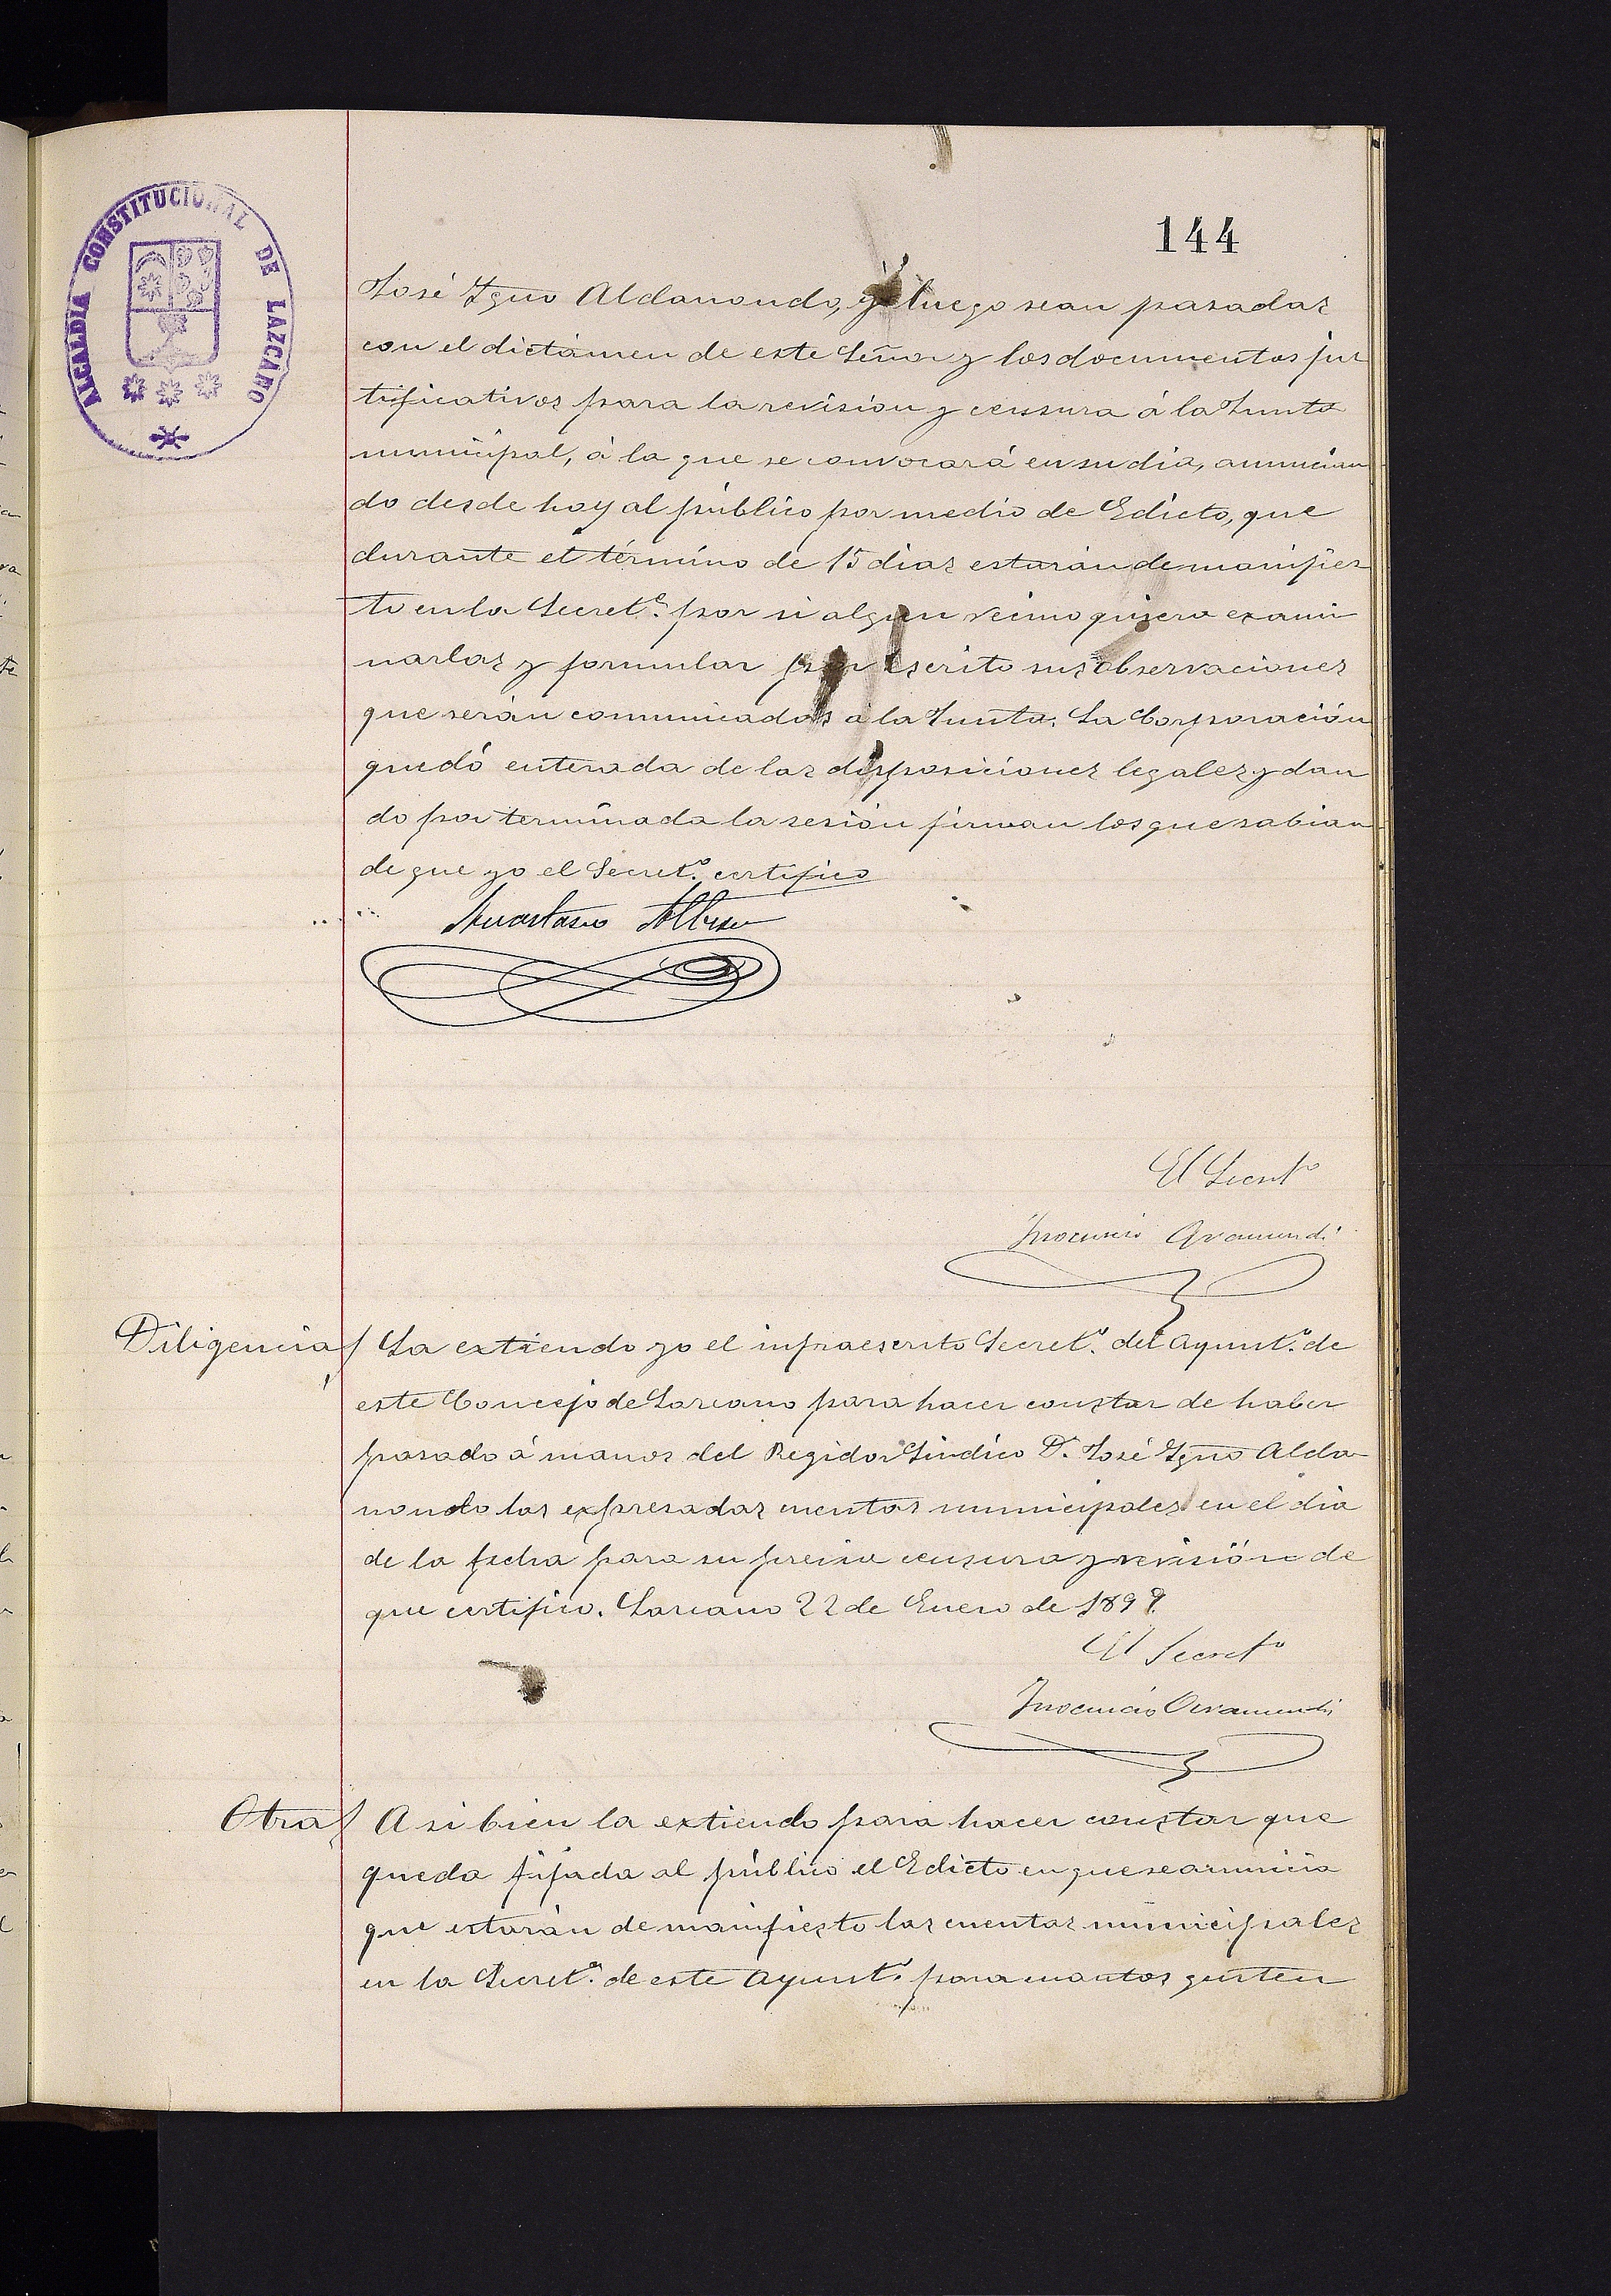 144
ALCALDIA CONSTITUCIONAL DE LAZCANO
José Ygno Aldanondo, y luego sean pasadas
con el dictámen de este Señor y los documentos jus
tificativos para la revision y censura á la Junta
municipal, á la que se convocará en su dia, anuncian
do desde hoy al público por medio de Edicto, que
durante el término de 15 dias estarán de manifies
to en la Secretª. por si algun vecino quisera exami
narlas y formular por escrito sus observaciones
que serán comunicadas á la Junta. La Corporación
quedó enterada de las disposiciones legales y dan
do por terminada la sesión firman los que sabian
de que yo el Secretº. certifico
Anastasio Albisu
El Secretº
Inocencio Garamendi
Diligencia/ La extiendo yo el infraescrito Secretº. del Ayuntº. de
este Concejo de Lazcano para hacer constar de haber
pasado á manos del Regidor Síndico D. José Ygno Alda
nondo las expresadas cuentas municipales en el dia
de la fecha para su previa censura y revisión de
que certifico. Lazcano 22 de Enero de 1899.
El Secretº
Inocencio Garamendi
Otra/ A si bien la extiendo para hacer constar que
queda fijada al público el Edicto en que se anuncia
que estarán de manifiesto las cuentas municipales
en la Secretª. de este Ayuntº. para cuantos gusten